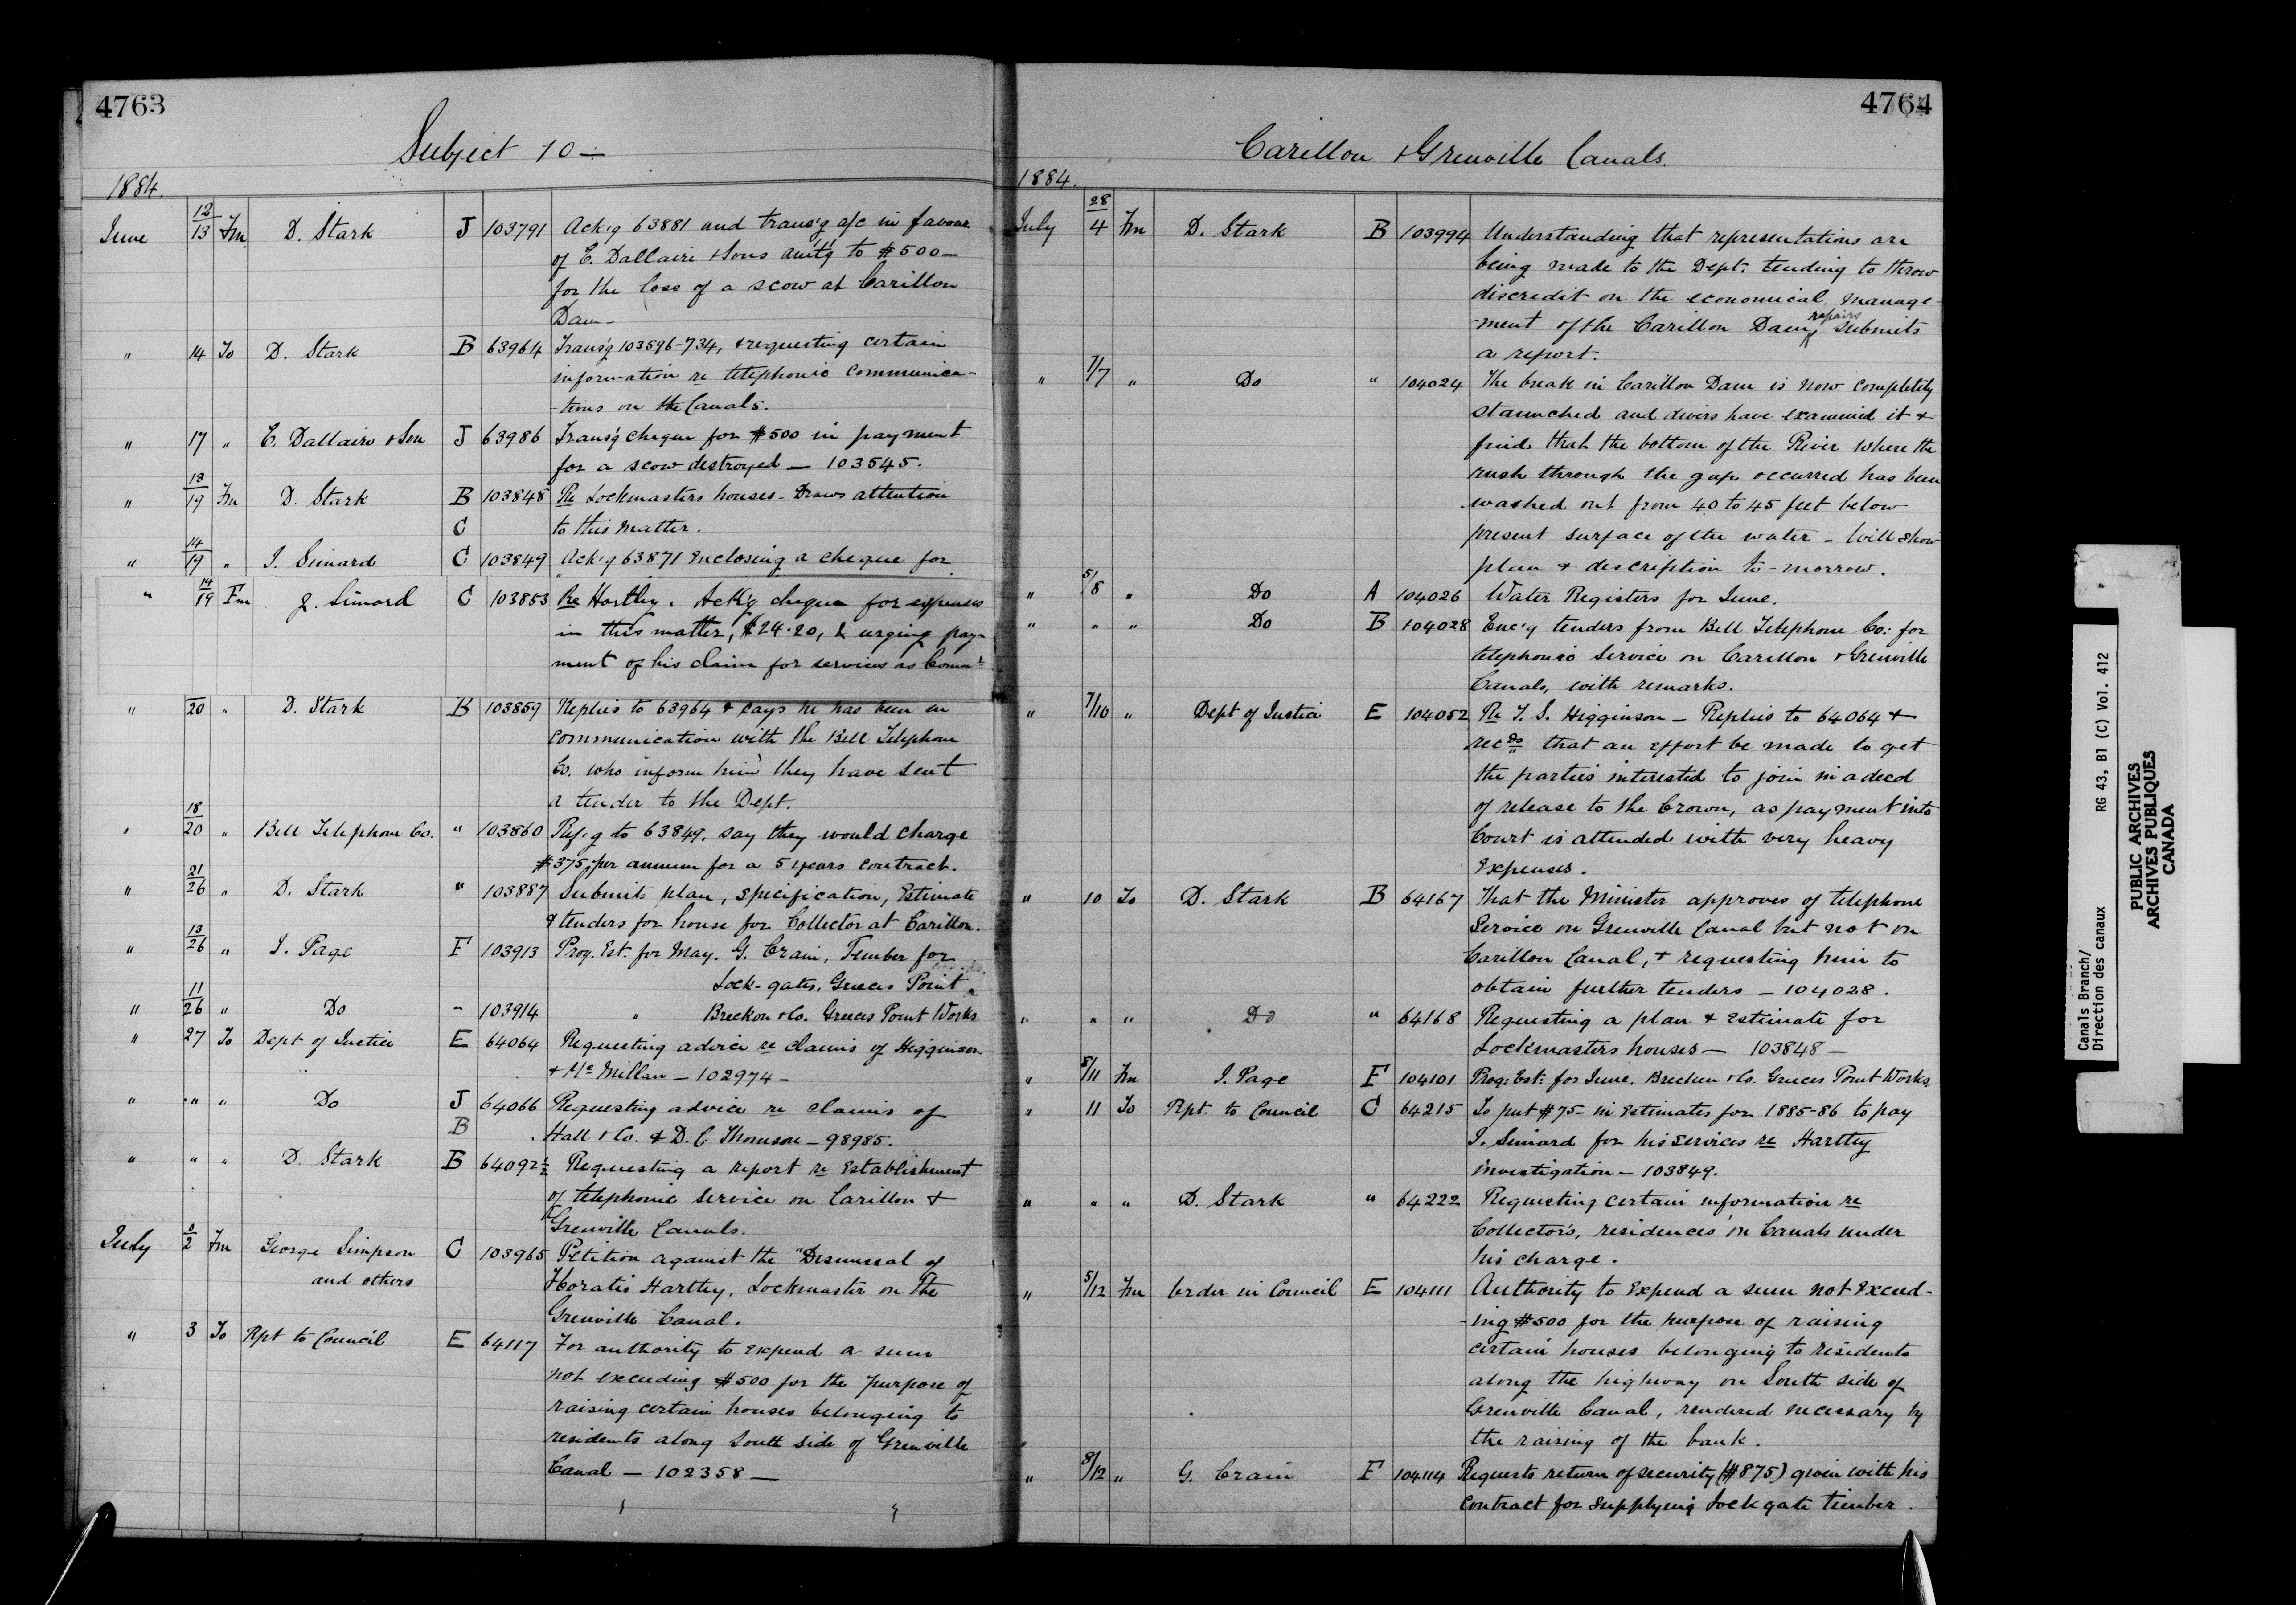 4763
Subject 10 —
1884.
June 12/13 Fm. D. Stark J 103791 Ack'g 63881 and trans'g a/c in favour
of E. Dallaire & Sons am't'g to $500 —
for the loss of a scow at Carillon
Dam —
" 14 To D. Stark B 63964 Trans'g 103596-734, & requesting certain
information re telephonic communica-
-tions on the Canals.
" 17 " E. Dallaire & Son J 63986 Trans'g cheque for $500 in payment
for a scow destroyed — 103545.
" 13/19 Fm D. Stark B 103848 Re Lockmasters houses - Draws attention
C to this matter.
" 14/19 " J. Simard C 103849 Ack'g 63871 Enclosing a cheque for
" 14/19 Fm J. Simard C 103853 Re Hartley. Ack'g cheque for expenses
in this matter, $24.20, & urging pay-
ment of his claim for services as Comm'r
" 20 " D. Stark B 103859 Replies to 63964 & says he has been in
communication with the Bell Telephone
Co. who inform him they have sent
a tender to the Dept.
" 18/20 " Bell Telephone Co. " 103860 Ref'g to 63849, say they would charge
$375. per annum for a 5 years contract.
" 21/26 " D. Stark " 103887 Submits plan, specification, Estimate
& tenders for house for Collector at Carillon.
" 13/26 " J. Page F 103913 Prog. Est. for May. G. Crain, Timber for
Lock-gates, Greeces Point
" 11/26 " Do " 103914 " Breckon & Co. Greeces Point Works
" 27 To Dept of Justice E 64064 Requesting advice re claims of Higginson
& McMillan — 102974 —
" " " Do J 64066 Requesting advice re claims of
B Hall & Co. & D. C. Thomson — 98985.
" " " D. Stark B 64092½ Requesting a report re Establishment
of telephonic service on Carillon &
Grenville Canals.
July /2 Fm George Simpson C 103965 Petition against the "Dismissal of
and others Horatio Hartley, Lockmaster on the
Grenville Canal.
" 3 To Rpt to Council E 64117 For authority to expend a sum
not exceeding $500 for the purpose of
raising certain houses belonging to
residents along South side of Grenville
Canal — 102358 —
4764
Carillon & Grenville Canals.
1884.
July 28/4 Fm D. Stark B 103994 Understanding that representations are
being made to the Dept. tending to throw
discredit on the economical manage-
-ment of the Carillon Dam repairs submits
a report.
" 7/7 " Do " 104024 The break in Carillon Dam is now completely
staunched and divers have examined it &
find that the bottom of the River where the
rush through the gap occurred has been
washed out from 40 to 45 feet below
present surface of the water — Will show
plan & description to-morrow.
" 5/8 " Do A 104026 Water Registers for June.
" " " Do B 104028 Enc'g tenders from Bell Telephone Co: for
telephonic service on Carillon & Grenville
Canals, with remarks.
" 7/10 " Dept of Justice E 104052 Re T. S. Higginson — Replies to 64064 &
recds that an effort be made to get
the parties interested to join in a deed
of release to the Crown, as payment into
Court is attended with very heavy
expenses.
" 10 To D. Stark B 64167 That the Minister approves of telephone
Service on Grenville Canal but not on
Carillon Canal, & requesting him to
obtain further tenders — 104028.
" " " Do " 64168 Requesting a plan & Estimate for
Lockmasters houses — 103848 —
" 8/11 Fm J. Page F 104101 Prog: Est: for June. Brecken & Co. Greeces Point Works
" 11 To Rpt. to Council C 64215 To put $75 — in Estimates for 1885-86 to pay
J. Simard for his services re Hartley
investigation — 103849.
" " " D. Stark " 64222 Requesting certain information re
Collector's, residences on Canals under
his charge.
" 5/12 Fm Order in Council E 104111 Authority to Expend a sum not Exceed-
-ing $500 for the purpose of raising
certain houses belonging to residents
along the highway on South side of
Grenville Canal, rendered necessary by
the raising of the bank.
" 8/12 " G. Crain F 104114 Requests return of security ($875) given with his
contract for supplying Lock gate timber.
Canals Branch/
Direction des canaux RG 43, B1 (C) Vol. 412
PUBLIC ARCHIVES
ARCHIVES PUBLIQUES
CANADA